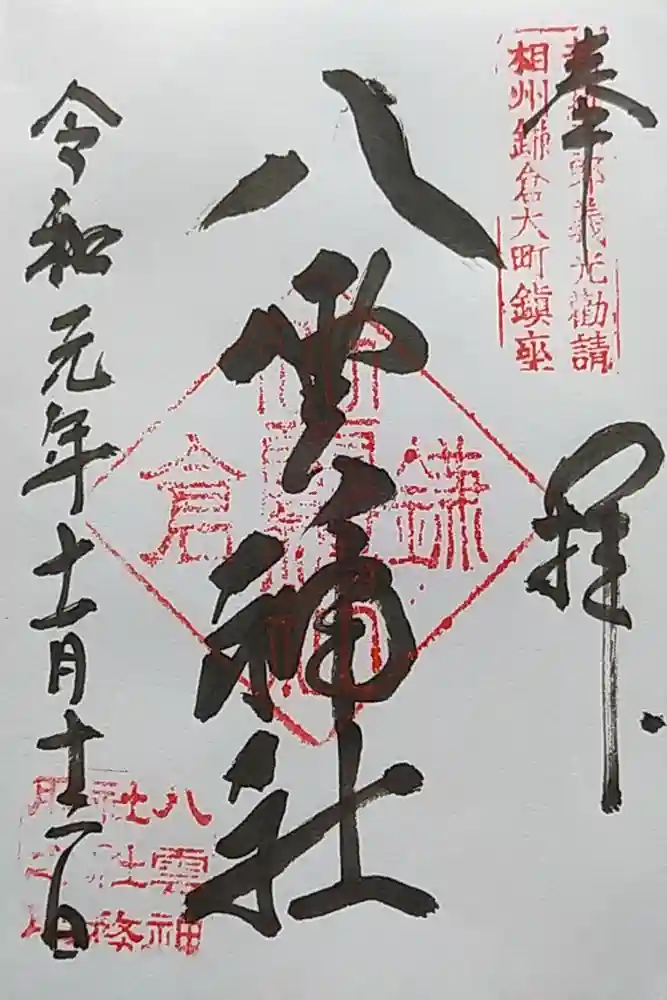 奉拝
郎義光勧請
相州鎌倉大町鎭座
八雲神社
鎌倉
令和元年十一月十二日
八雲神
社社務
所之印